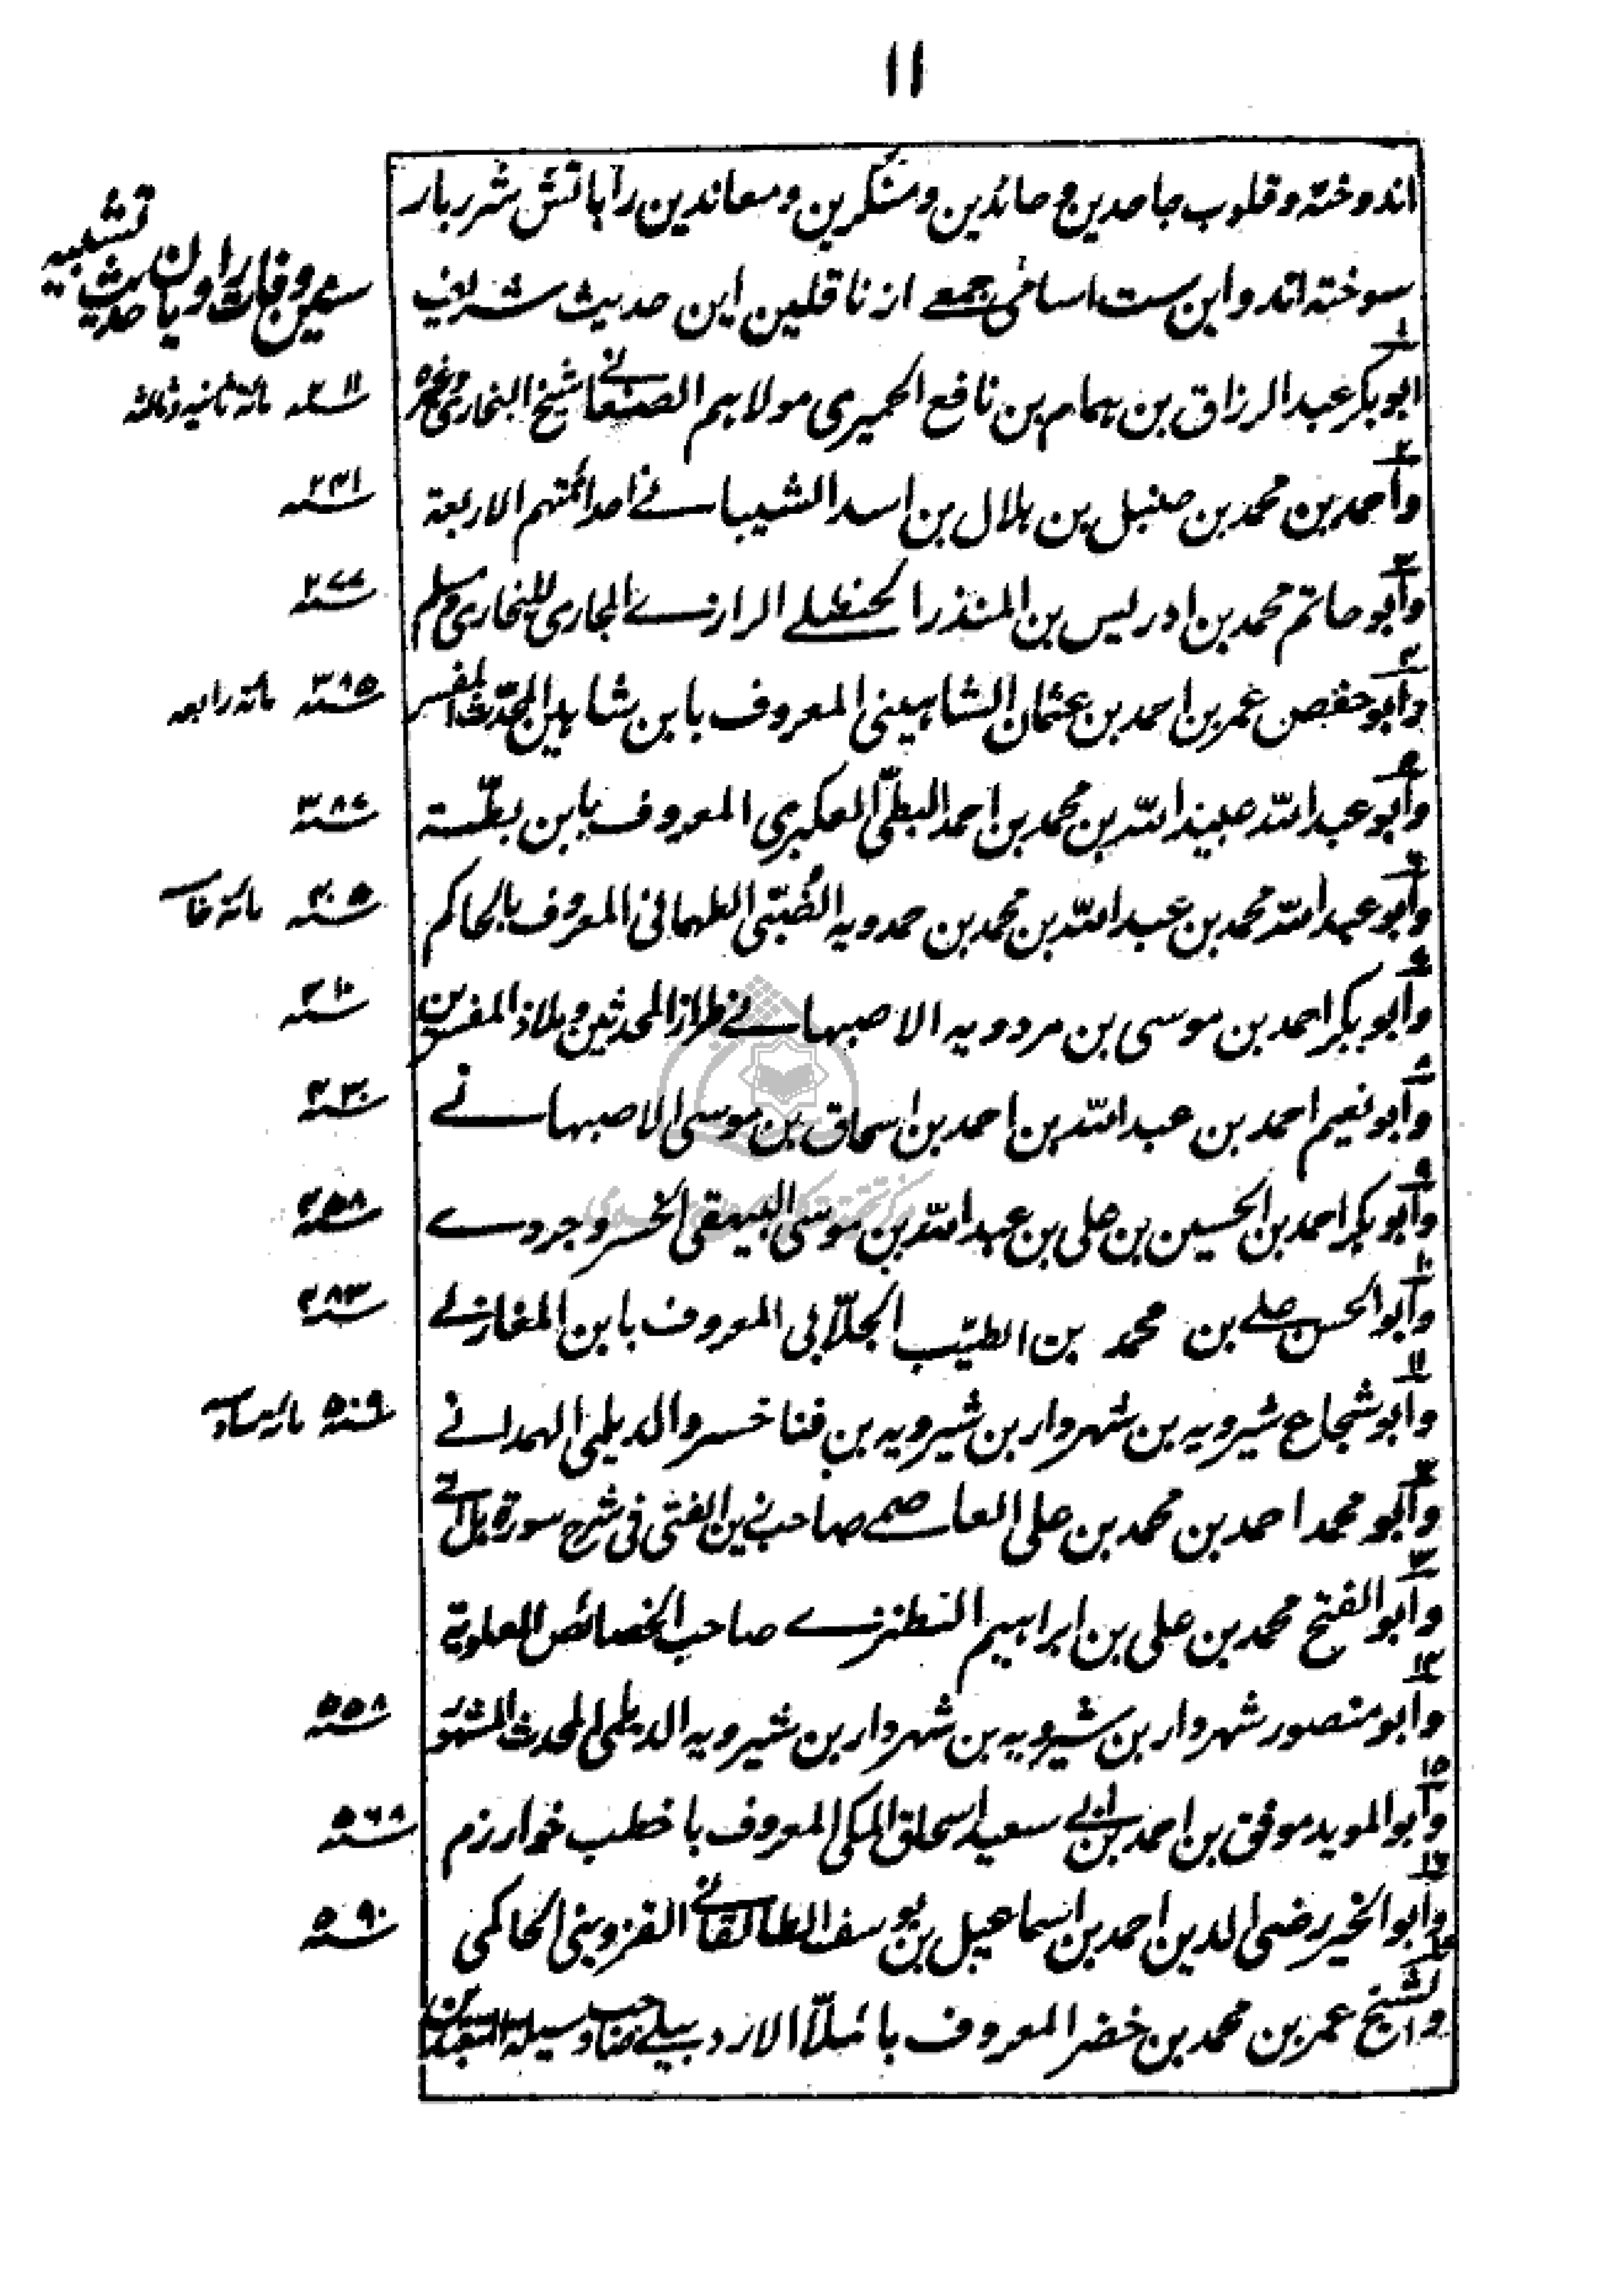 ۱۱
اندوخته و قلوب جاحدین و حائدین و منکرین و معاندین را باتش شرربار
سنین وفات راویان حدیث تشبیه
سوخته اند و این ست اسامی جمعے از ناقلین این حدیث شریف
۱ ابو بکر عبد الرزاق بن همام بن نافع الحمیری مولاہم الصنعانے شیخ البخاری وغیره
سنه ۲۱۱ مائة ثانیه و ثالثه
۲ وأحمد بن محمد بن حنبل بن ہلال بن اسد الشیبانے احد ائمتهم الاربعة
سنه ۲۴۱
۳ وأبو حاتم محمد بن ادریس بن المنذر الحنظلے الرازے المجاری للبخاری و مسلم
سنه ۲۷۷
۴ وأبو حفص عمر بن احمد بن عثمان الشاہینی المعروف بابن شاہین المحدّث المفسر
سنه ۳۸۵ مائة رابعه
۵ وأبو عبد اللّه عبید اللّه بن محمد بن احمد البطّی العکبری المعروف بابن بطّة
سنه ۳۸۷
۶ وأبو عبد اللّه محمد بن عبد اللّه بن محمد بن حمدویه الضُبّی الطهمانی المعروف بالحاکم
سنه ۴۰۵ مائة خامسه
۷ وأبو بکر احمد بن موسی بن مردویه الاصبهانے طراز المحدثین و ملاذ المفسرین
سنه ۴۱۰
۸ وأبو نعیم احمد بن عبد اللّه بن احمد بن اسحاق بن موسی الاصبهانے
سنه ۴۳۰
۹ وأبو بکر احمد بن الحسین بن علی بن عبد اللّه بن موسی البیهقی الخسروجردے
سنه ۴۵۸
۱۰ وأبو الحسن علے بن محمد بن الطیّب الجلّابی المعروف بابن المغازلے
سنه ۴۸۳
۱۱ وأبو شجاع شیرویه بن شهردار بن شیرویه بن فنا خسرو الدیلمی الهمدانے
سنه ۵۰۹ مائة سادسه
۱۲ وأبو محمد احمد بن محمد بن علی العاصمے صاحب زین الفتی فی شرح سورة هل اتے
۱۳ وأبو الفتح محمد بن علی بن ابراہیم النطنزے صاحب الخصائص العلویة
۱۴ وأبو منصور شهردار بن شیرویه بن شهردار بن شیرویه الدیلمی المحدث المشهور
سنه ۵۵۸
۱۵ وأبو الموید موفق بن احمد بن ابے سعید اسحٰق المکی المعروف باخطب خوارزم
سنه ۵۶۸
۱۶ وأبو الخیر رضی الدین احمد بن اسماعیل بن یوسف الطالقانے القزوینی الحاکمی
سنه ۵۹۰
۱۷ والشیخ عمر بن محمد بن خضر المعروف بالمُلّا الاردبیلے صاحب وسیلة المتعبدین